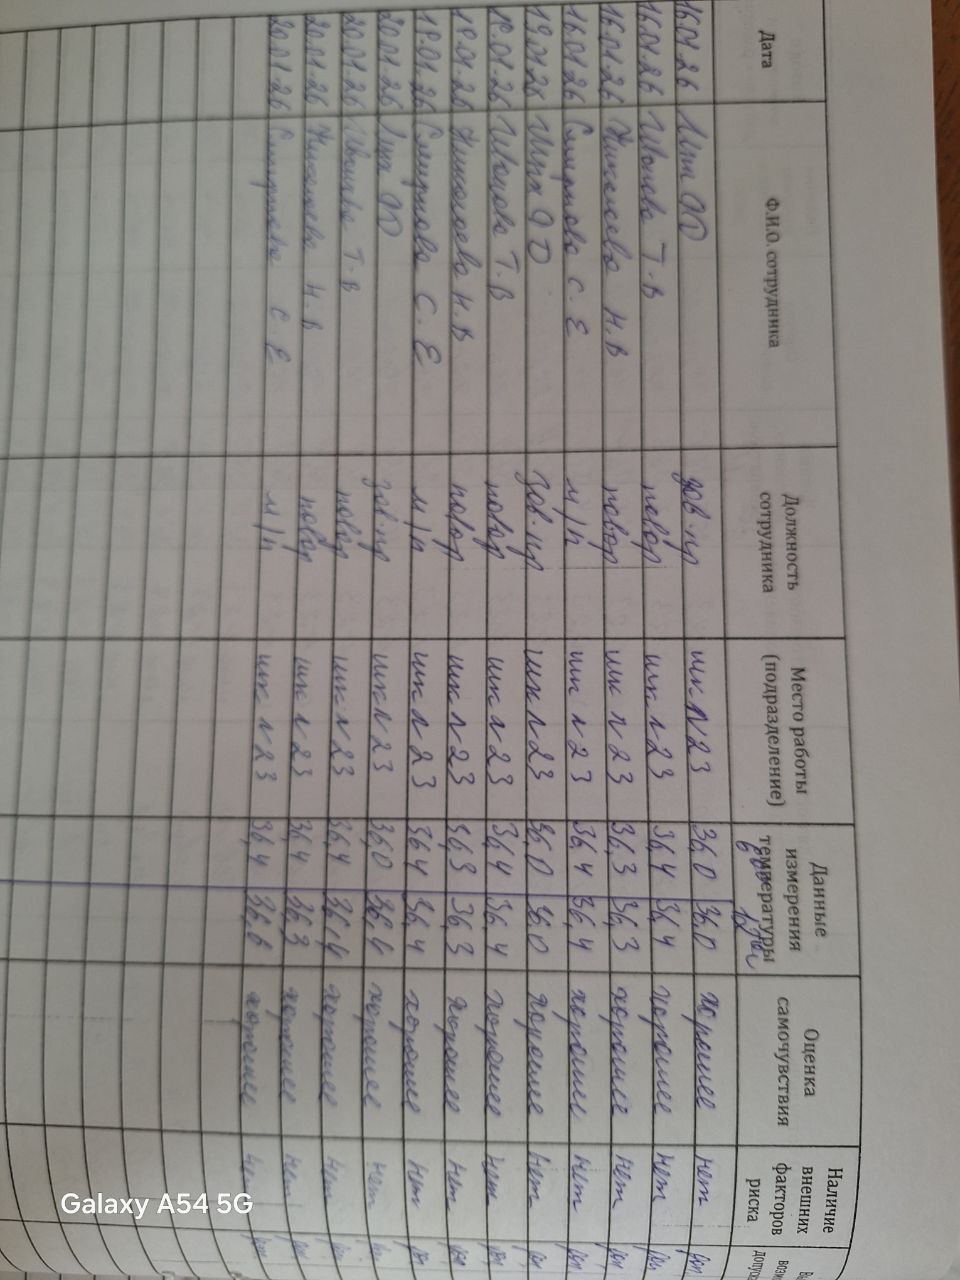 Дата Ф.И.О. сотрудника Должность сотрудника Место работы (подразделение) Данные измерения температуры Оценка самочувствия Наличие внешних факторов риска
16.01.26 зав.пр шк л 23 36,0 36,0 хорошее нет
16.01.26 Иванова Т.В повар шк л 23 36,4 36,4 хорошее нет
16.01.26 Николаева Н.В повар шк л 23 36,3 36,3 хорошее нет
16.01.26 Смирнова С.Е м/п шк л 23 36,4 36,4 хорошее нет
19.01.26 зав.пр шк л 23 36,0 36,0 хорошее нет
19.01.26 Иванова Т.В повар шк л 23 36,4 36,4 хорошее нет
19.01.26 Николаева Н.В повар шк л 23 36,3 36,3 хорошее нет
19.01.26 Смирнова С.Е м/п шк л 23 36,4 36,4 хорошее нет
20.01.26 зав.пр шк л 23 36,0 36,4 хорошее нет
20.01.26 Иванова Т.В повар шк л 23 36,4 36,4 хорошее нет
20.01.26 Николаева Н.В повар шк л 23 36,4 36,3 хорошее нет
20.01.26 Смирнова С.Е м/п шк л 23 36,4 36,6 хорошее нет
Galaxy A54 5G